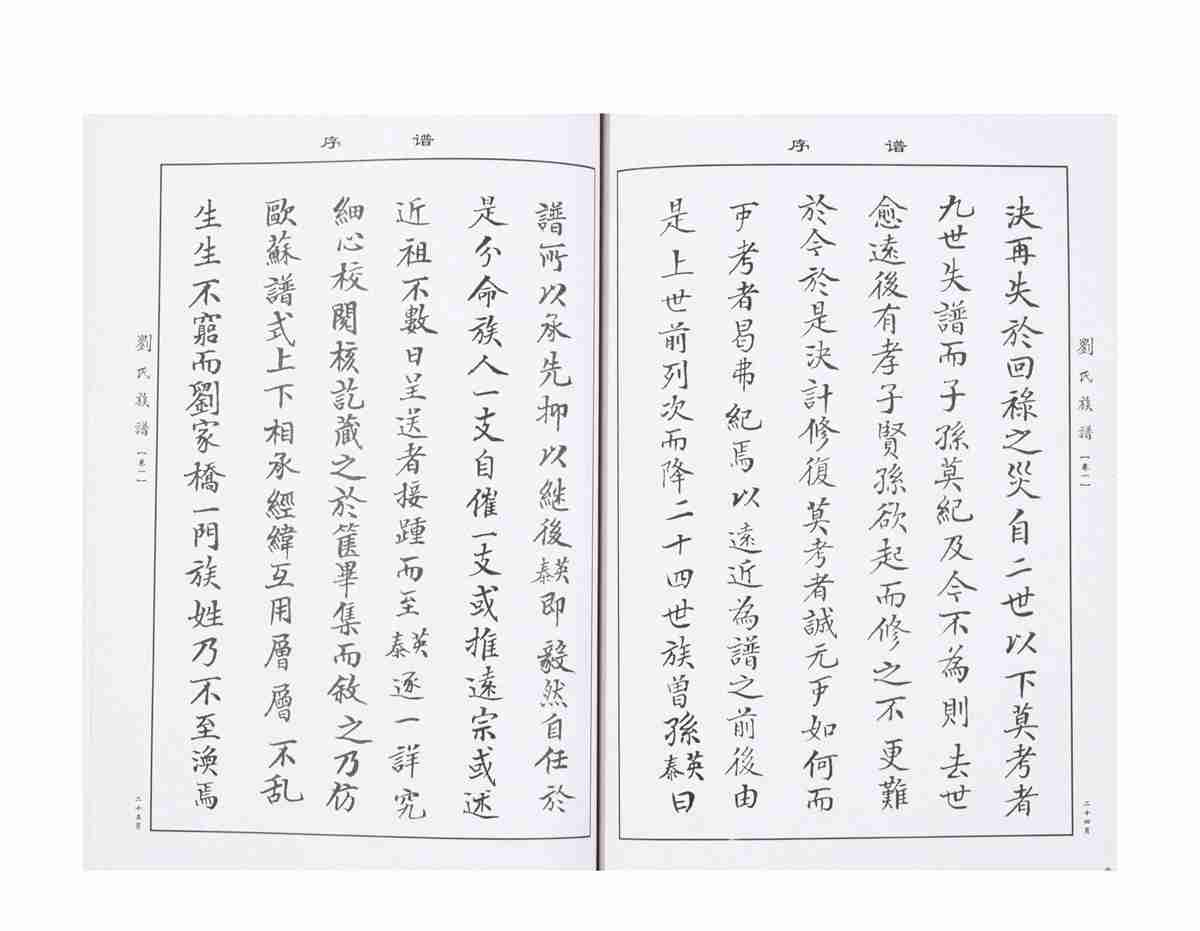 谱序
劉氏族譜【卷一】
二十四頁
決再失於回祿之災自二世以下莫考者
九世失譜而子孫莫紀及今不為則去世
愈遠後有孝子賢孫欲起而修之不更難
於今於是決計修復莫考者誠元可如何而
可考者曷弗紀焉以遠近為譜之前後由
是上世前列次而降二十四世族曾孫英泰曰
谱序
譜所以承先抑以継後英泰即毅然自任於
是分命族人一支自催一支或推遠宗或述
近祖不數日呈送者接踵而至英泰逐一詳究
細心校閱核訖蔵之於篋畢集而敘之乃仿
歐蘇譜式上下相承經緯互用層層不乱
生生不窮而劉家橋一門族姓乃不至渙焉
劉氏族譜【卷一】
二十五頁